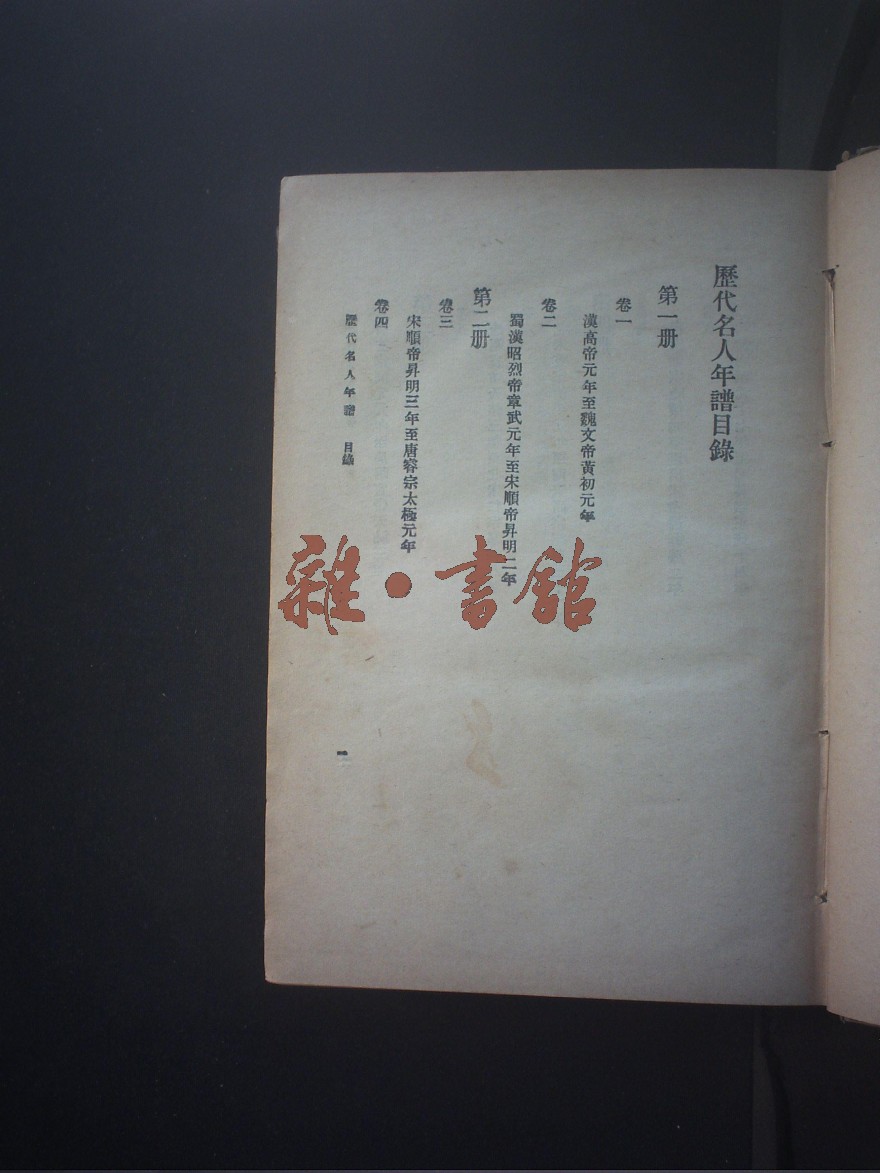 歷代名人年譜目錄
第一册
卷一
漢高帝元年至魏文帝黃初元年
卷二
蜀漢昭烈帝章武元年至宋順帝昇明二年
第二册
卷三
宋順帝昇明三年至唐睿宗太極元年
卷四
歷代名人年譜 目錄
雜·書館